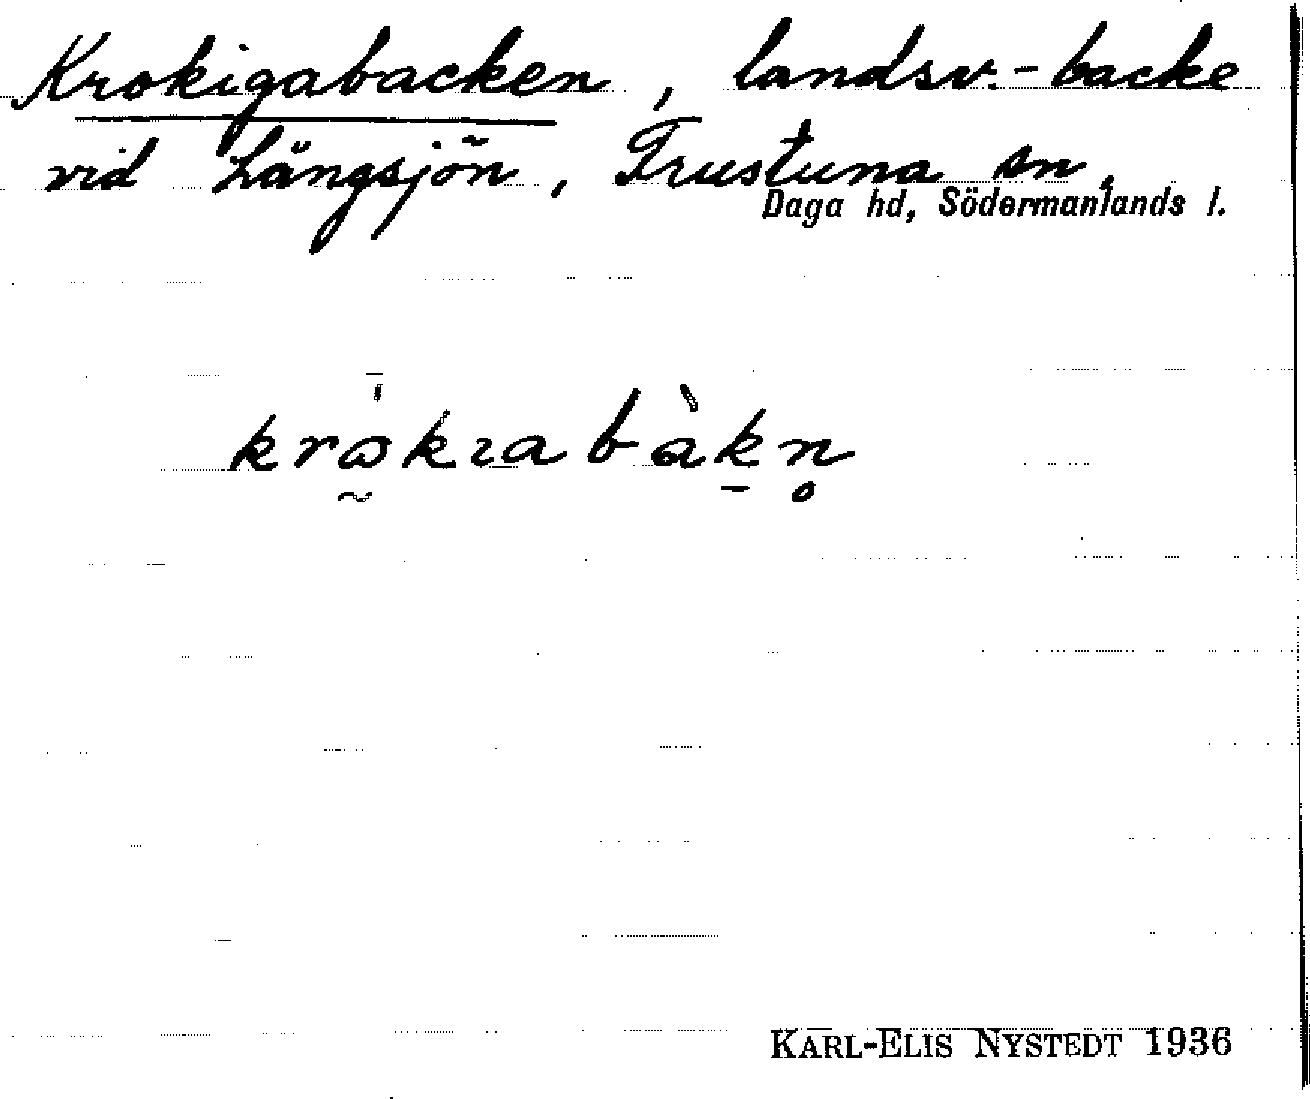 Krokigabacken, landsv.-backe
vid Långsjön, Frustuna sn,
Daga hd, Södermanlands l.
KARL-ELIS NYSTEDT 1936